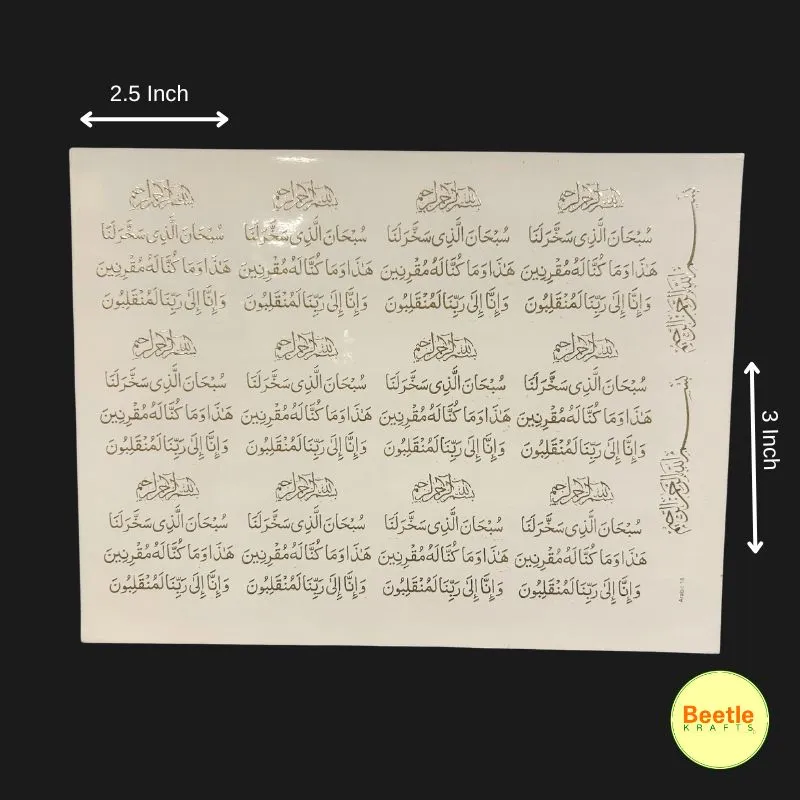 2.5 Inch
بسم الله الرحمن الرحيم
سُبْحَانَ الَّذِى سَخَّرَ لَنَا
هَٰذَا وَمَا كُنَّا لَهُ مُقْرِنِينَ
وَإِنَّا إِلَى رَبِّنَا لَمُنْقَلِبُونَ
بسم الله الرحمن الرحيم
سُبْحَانَ الَّذِى سَخَّرَ لَنَا
هَٰذَا وَمَا كُنَّا لَهُ مُقْرِنِينَ
وَإِنَّا إِلَى رَبِّنَا لَمُنْقَلِبُونَ
بسم الله الرحمن الرحيم
سُبْحَانَ الَّذِى سَخَّرَ لَنَا
هَٰذَا وَمَا كُنَّا لَهُ مُقْرِنِينَ
وَإِنَّا إِلَى رَبِّنَا لَمُنْقَلِبُونَ
بسم الله الرحمن الرحيم
سُبْحَانَ الَّذِى سَخَّرَ لَنَا
هَٰذَا وَمَا كُنَّا لَهُ مُقْرِنِينَ
وَإِنَّا إِلَى رَبِّنَا لَمُنْقَلِبُونَ
بسم الله الرحمن الرحيم
سُبْحَانَ الَّذِى سَخَّرَ لَنَا
هَٰذَا وَمَا كُنَّا لَهُ مُقْرِنِينَ
وَإِنَّا إِلَى رَبِّنَا لَمُنْقَلِبُونَ
بسم الله الرحمن الرحيم
سُبْحَانَ الَّذِى سَخَّرَ لَنَا
هَٰذَا وَمَا كُنَّا لَهُ مُقْرِنِينَ
وَإِنَّا إِلَى رَبِّنَا لَمُنْقَلِبُونَ
بسم الله الرحمن الرحيم
سُبْحَانَ الَّذِى سَخَّرَ لَنَا
هَٰذَا وَمَا كُنَّا لَهُ مُقْرِنِينَ
وَإِنَّا إِلَى رَبِّنَا لَمُنْقَلِبُونَ
بسم الله الرحمن الرحيم
سُبْحَانَ الَّذِى سَخَّرَ لَنَا
هَٰذَا وَمَا كُنَّا لَهُ مُقْرِنِينَ
وَإِنَّا إِلَى رَبِّنَا لَمُنْقَلِبُونَ
بسم الله الرحمن الرحيم
سُبْحَانَ الَّذِى سَخَّرَ لَنَا
هَٰذَا وَمَا كُنَّا لَهُ مُقْرِنِينَ
وَإِنَّا إِلَى رَبِّنَا لَمُنْقَلِبُونَ
بسم الله الرحمن الرحيم
سُبْحَانَ الَّذِى سَخَّرَ لَنَا
هَٰذَا وَمَا كُنَّا لَهُ مُقْرِنِينَ
وَإِنَّا إِلَى رَبِّنَا لَمُنْقَلِبُونَ
بسم الله الرحمن الرحيم
سُبْحَانَ الَّذِى سَخَّرَ لَنَا
هَٰذَا وَمَا كُنَّا لَهُ مُقْرِنِينَ
وَإِنَّا إِلَى رَبِّنَا لَمُنْقَلِبُونَ
بسم الله الرحمن الرحيم
سُبْحَانَ الَّذِى سَخَّرَ لَنَا
هَٰذَا وَمَا كُنَّا لَهُ مُقْرِنِينَ
وَإِنَّا إِلَى رَبِّنَا لَمُنْقَلِبُونَ
بسم الله الرحمن الرحيم
بسم الله الرحمن الرحيم
3 Inch
Beetle
KRAFTS